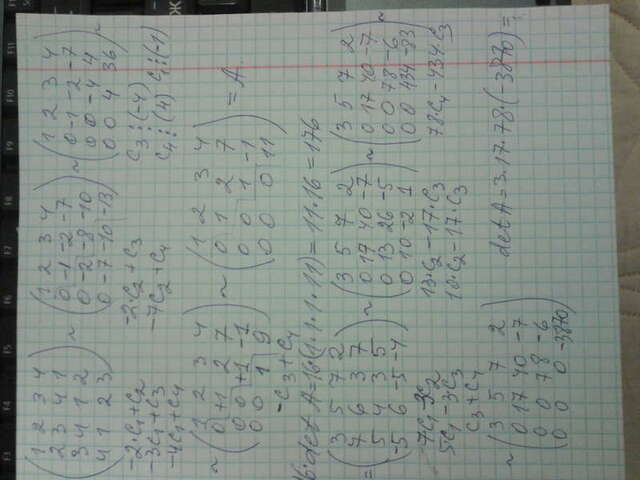 ( 1 2 3 4
2 3 4 1
3 4 1 2
4 1 2 3 ) ~ ( 1 2 3 4
0 -1 -2 -7
0 -2 -8 -10
0 -7 -10 -13 ) ~ ( 1 2 3 4
0 -1 -2 -7
0 0 -4 4
0 0 4 36 ) ~
-2·C1+C2
-3C1+C3
-4C1+C4
-2C2+C3
-7C2+C4
C3:(-4)
C4:(4) C1:(-1)
~ ( 1 2 3 4
0 +1 2 7
0 0 +1 -1
0 0 1 9 ) ~ ( 1 2 3 4
0 1 2 7
0 0 1 -1
0 0 0 11 ) = A
-C3+C4
det A=16(1·1·1·11)=11·16=176
= ( 3 5 7 2
7 6 3 7
5 4 3 5
-5 6 -5 -4 ) ~ ( 3 5 7 2
0 17 40 -7
0 13 26 -5
0 10 -2 1 ) ~ ( 3 5 7 2
0 17 40 -7
0 0 78 -6
0 0 434 -83 ) ~
5C1-3C3
C3+C4
13·C2-17·C3
18·C2-17·C3
78C4-434C3
~ ( 3 5 7 2
0 17 40 -7
0 0 78 -6
0 0 0 -3870 )
det A=3·17·78·(-3870)=
F3
F4
F5
F6
F7
F8
F9
F10
F11
Ж